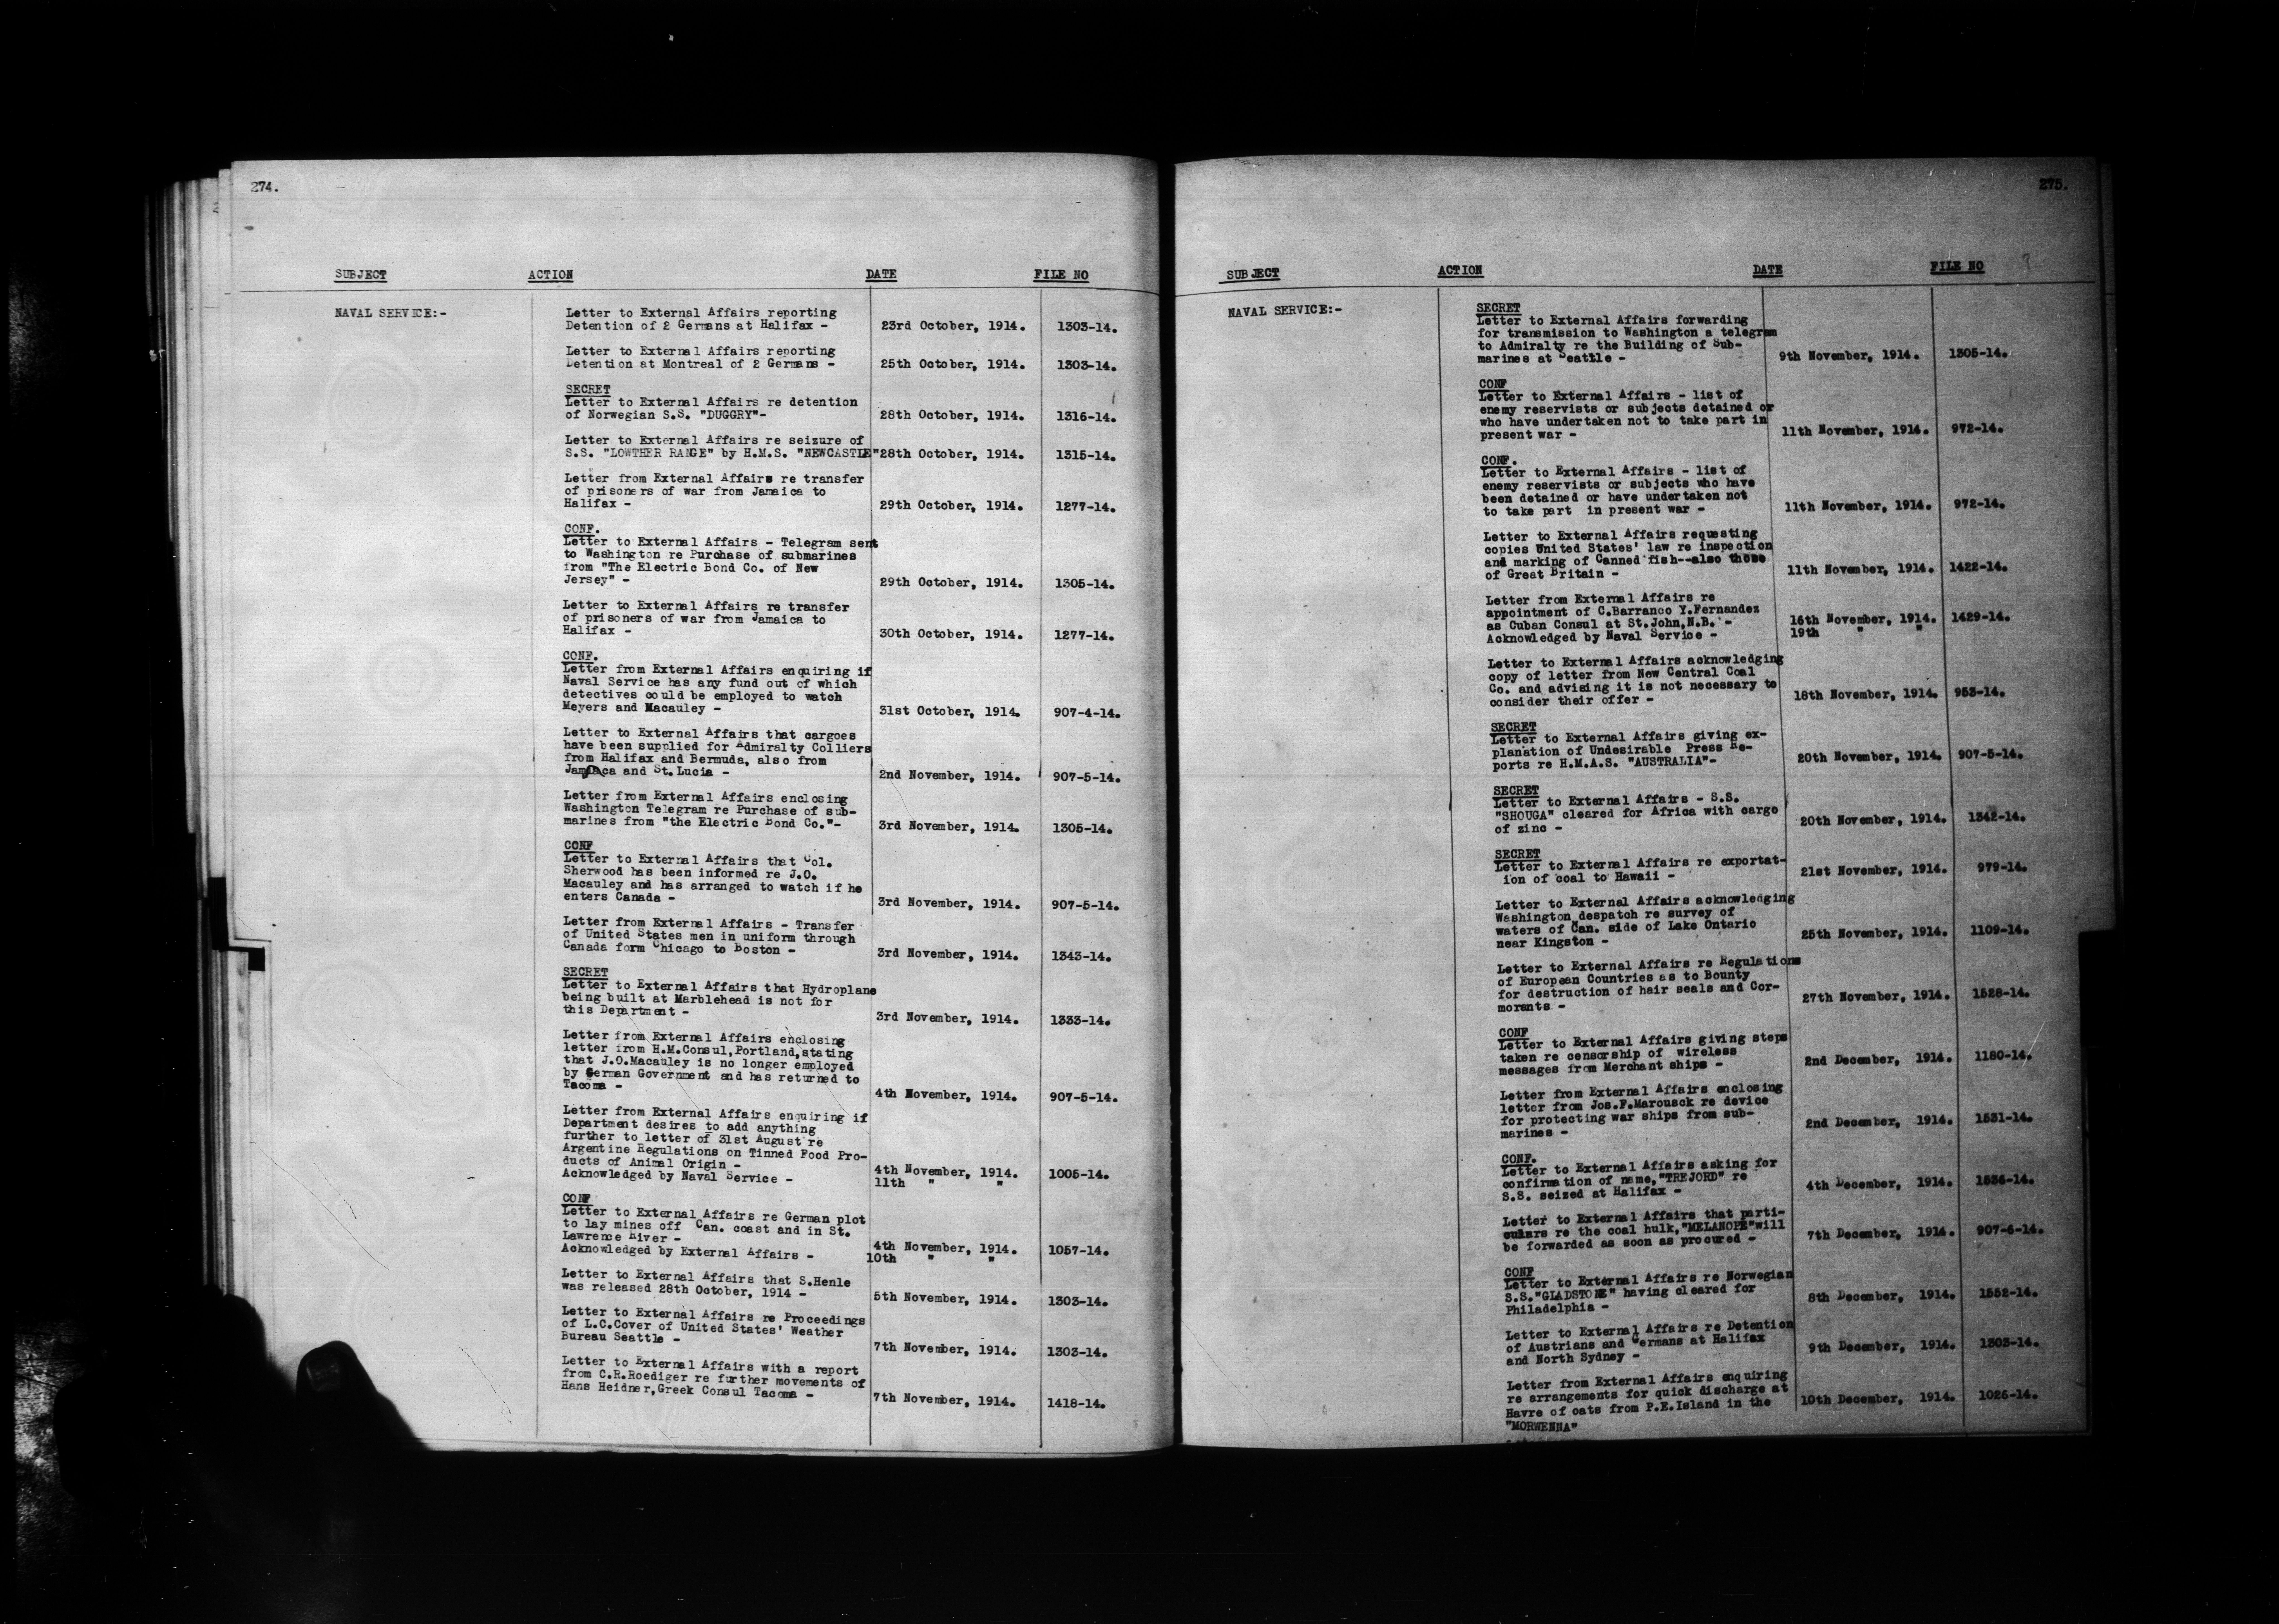 274.
SUBJECT ACTION DATE FILE NO
NAVAL SERVICE:-
Letter to External Affairs reporting
Detention of 2 Germans at Halifax - 23rd October, 1914. 1303-14.
Letter to External Affairs reporting
Detention at Montreal of 2 Germans - 25th October, 1914. 1303-14.
SECRET
Letter to External Affairs re detention
of Norwegian S.S. "DUGGRY"- 28th October, 1914. 1316-14.
Letter to External Affairs re seizure of
S.S. "LOWTHER RANGE" by H.M.S. "NEWCASTLE" 28th October, 1914. 1315-14.
Letter from External Affairs re transfer
of prisoners of war from Jamaica to
Halifax - 29th October, 1914. 1277-14.
CONF.
Letter to External Affairs - Telegram sent
to Washington re Purchase of submarines
from "The Electric Bond Co. of New
Jersey" - 29th October, 1914. 1305-14.
Letter to External Affairs re transfer
of prisoners of war from Jamaica to
Halifax - 30th October, 1914. 1277-14.
CONF.
Letter from External Affairs enquiring if
Naval Service has any fund out of which
detectives could be employed to watch
Meyers and Macauley - 31st October, 1914. 907-4-14.
Letter to External Affairs that cargoes
have been supplied for Admiralty Colliers
from Halifax and Bermuda, also from
Jamaica and St. Lucia - 2nd November, 1914. 907-5-14.
Letter from External Affairs enclosing
Washington Telegram re Purchase of sub-
marines from "the Electric Bond Co."- 3rd November, 1914. 1305-14.
CONF
Letter to External Affairs that Col.
Sherwood has been informed re J.O.
Macauley and has arranged to watch if he
enters Canada - 3rd November, 1914. 907-5-14.
Letter from External Affairs - Transfer
of United States men in uniform through
Canada form Chicago to Boston - 3rd November, 1914. 1343-14.
SECRET
Letter to External Affairs that Hydroplane
being built at Marblehead is not for
this Department - 3rd November, 1914. 1333-14.
Letter from External Affairs enclosing
letter from H.M.Consul, Portland, stating
that J.O.Macauley is no longer employed
by German Government and has returned to
Tacoma - 4th November, 1914. 907-5-14.
Letter from External Affairs enquiring if
Department desires to add anything
further to letter of 31st August re
Argentine Regulations on Tinned Food Pro-
ducts of Animal Origin - 4th November, 1914. 1005-14.
Acknowledged by Naval Service - 11th " "
CONF
Letter to External Affairs re German plot
to lay mines off Can. coast and in St.
Lawrence River - 4th November, 1914. 1057-14.
Acknowledged by External Affairs - 10th " "
Letter to External Affairs that S.Henle
was released 28th October, 1914 - 5th November, 1914. 1303-14.
Letter to External Affairs re Proceedings
of L.C.Cover of United States' Weather
Bureau Seattle - 7th November, 1914. 1303-14.
Letter to External Affairs with a report
from C.R.Roediger re further movements of
Hans Heidner, Greek Consul Tacoma - 7th November, 1914. 1418-14.
275.
SUBJECT ACTION DATE FILE NO ?
NAVAL SERVICE:-
SECRET
Letter to External Affairs forwarding
for transmission to Washington a telegram
to Admiralty re the Building of Sub-
marines at Seattle - 9th November, 1914. 1305-14.
CONF
Letter to External Affairs - list of
enemy reservists or subjects detained or
who have undertaken not to take part in
present war - 11th November, 1914. 972-14.
CONF.
Letter to External Affairs - list of
enemy reservists or subjects who have
been detained or have undertaken not
to take part in present war - 11th November, 1914. 972-14.
Letter to External Affairs requesting
copies United States' law re inspection
and marking of Canned fish--also those
of Great Britain - 11th November, 1914. 1422-14.
Letter from External Affairs re
appointment of C.Barranco Y.Fernandez
as Cuban Consul at St.John, N.B. - 16th November, 1914. 1429-14.
Acknowledged by Naval Service - 19th " "
Letter to External Affairs acknowledging
copy of letter from New Central Coal
Co. and advising it is not necessary to
consider their offer - 18th November, 1914. 953-14.
SECRET
Letter to External Affairs giving ex-
planation of Undesirable Press Re-
ports re H.M.A.S. "AUSTRALIA"- 20th November, 1914. 907-5-14.
SECRET
Letter to External Affairs - S.S.
"SHOUGA" cleared for Africa with cargo
of zinc - 20th November, 1914. 1342-14.
SECRET
Letter to External Affairs re exportat-
ion of coal to Hawaii - 21st November, 1914. 979-14.
Letter to External Affairs acknowledging
Washington despatch re survey of
waters of Can. side of Lake Ontario
near Kingston - 25th November, 1914. 1109-14.
Letter to External Affairs re Regulations
of European Countries as to Bounty
for destruction of hair seals and Cor-
morants - 27th November, 1914. 1528-14.
CONF
Letter to External Affairs giving steps
taken re censorship of wireless
messages from Merchant ships - 2nd December, 1914. 1180-14.
Letter from External Affairs enclosing
letter from Jos.F.Marousck re device
for protecting war ships from sub-
marines - 2nd December, 1914. 1531-14.
CONF.
Letter to External Affairs asking for
confirmation of name, "TREJORD" re
S.S. seized at Halifax - 4th December, 1914. 1536-14.
Letter to External Affairs that parti-
culars re the coal hulk, "MELANOPE" will
be forwarded as soon as procured - 7th December, 1914. 907-6-14.
CONF
Letter to External Affairs re Norwegian
S.S."GLADSTONE" having cleared for
Philadelphia - 8th December, 1914. 1552-14.
Letter to External Affairs re Detention
of Austrians and Germans at Halifax
and North Sydney - 9th December, 1914. 1303-14.
Letter from External Affairs enquiring
re arrangements for quick discharge at
Havre of oats from P.E.Island in the 10th December, 1914. 1026-14.
"MORWENNA"